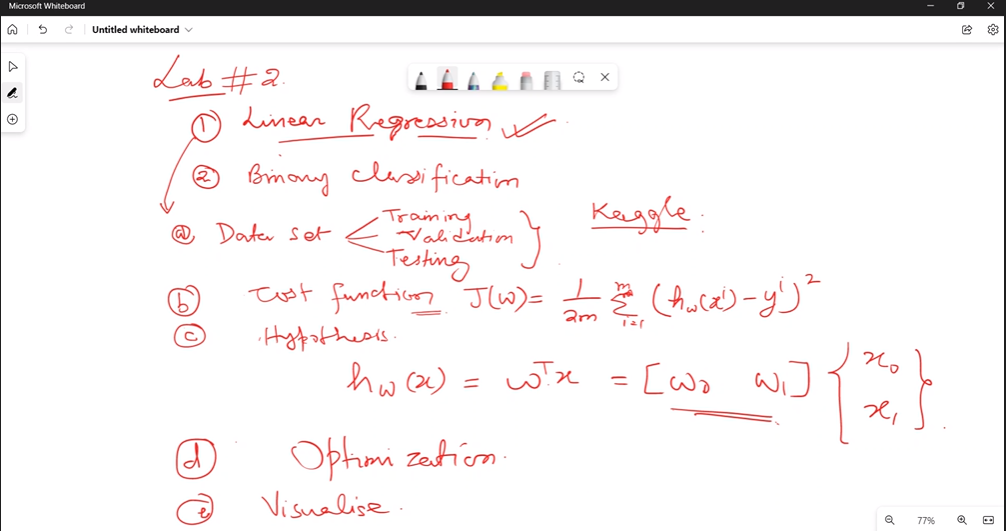 Microsoft Whiteboard
Untitled whiteboard
Lab #2.
① Linear Regression ✓
② Binary classification
ⓐ Data set Training
Validation
Testing
Kaggle.
ⓑ Cost function J(w) = 1/2m m∑i=1 (hw(xⁱ) - yⁱ)²
ⓒ Hypothesis.
hw(x) = wᵀx = [w₀ w₁] { x₀
x₁ }.
ⓓ Optimization.
ⓔ Visualise.
77%